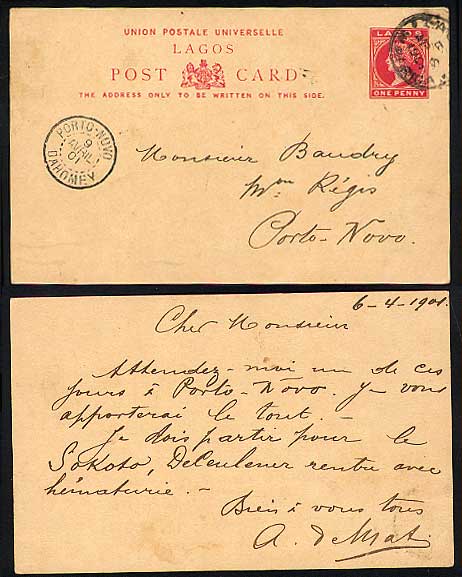 UNION POSTALE UNIVERSELLE
LAGOS
POST CARD
THE ADDRESS ONLY TO BE WRITTEN ON THIS SIDE.
LAGOS
ONE PENNY
PORTO-NOVO
9
AVRIL
01
DAHOMEY
Monsieur Baudry
Mon Régis
Porto-Novo.
6-4-1901.
Cher Monsieur
Attendez-moi un de ces
jours à Porto-Novo. Je vous
apporterai le tout.-
Je dois partir pour le
Sokoto, DeCeulener rentre avec
hématurie.-
Bien à vous tous
A. DeMat